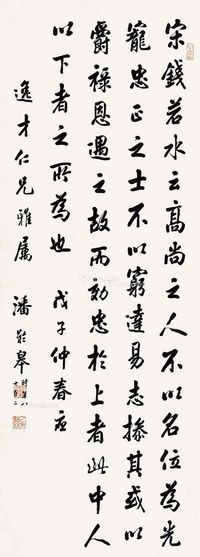 宋錢若水云高尚之人不以名位為光
寵忠正之士不以窮達易志操其或以
爵祿恩遇之故而効忠於上者此中人
以下者之所為也　戊子仲春應
逸才仁兄雅屬　潘齡皋